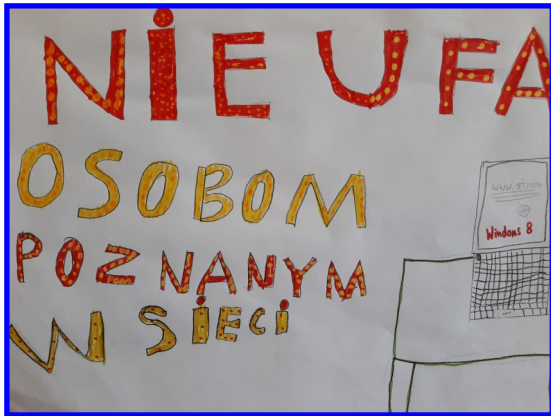 NIE UFA
OSOBOM
POZNANYM
W SIECI
www.strona
@
Windows 8